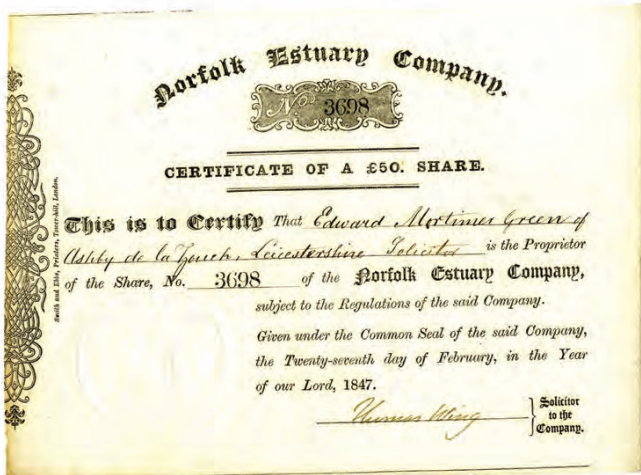 Norfolk Estuary Company.
Nos 3698
CERTIFICATE OF A £50. SHARE.
This is to Certify That Edward Mortimer Green of
Ashby de la Zouch, Leicestershire Solicitor is the Proprietor
of the Share, No. 3698 of the Norfolk Estuary Company,
subject to the Regulations of the said Company.
Given under the Common Seal of the said Company,
the Twenty-seventh day of February, in the Year
of our Lord, 1847.
Thomas Wing
Solicitor
to the
Company.
Smith and Ebbs, Printers, Tower-hill, London.